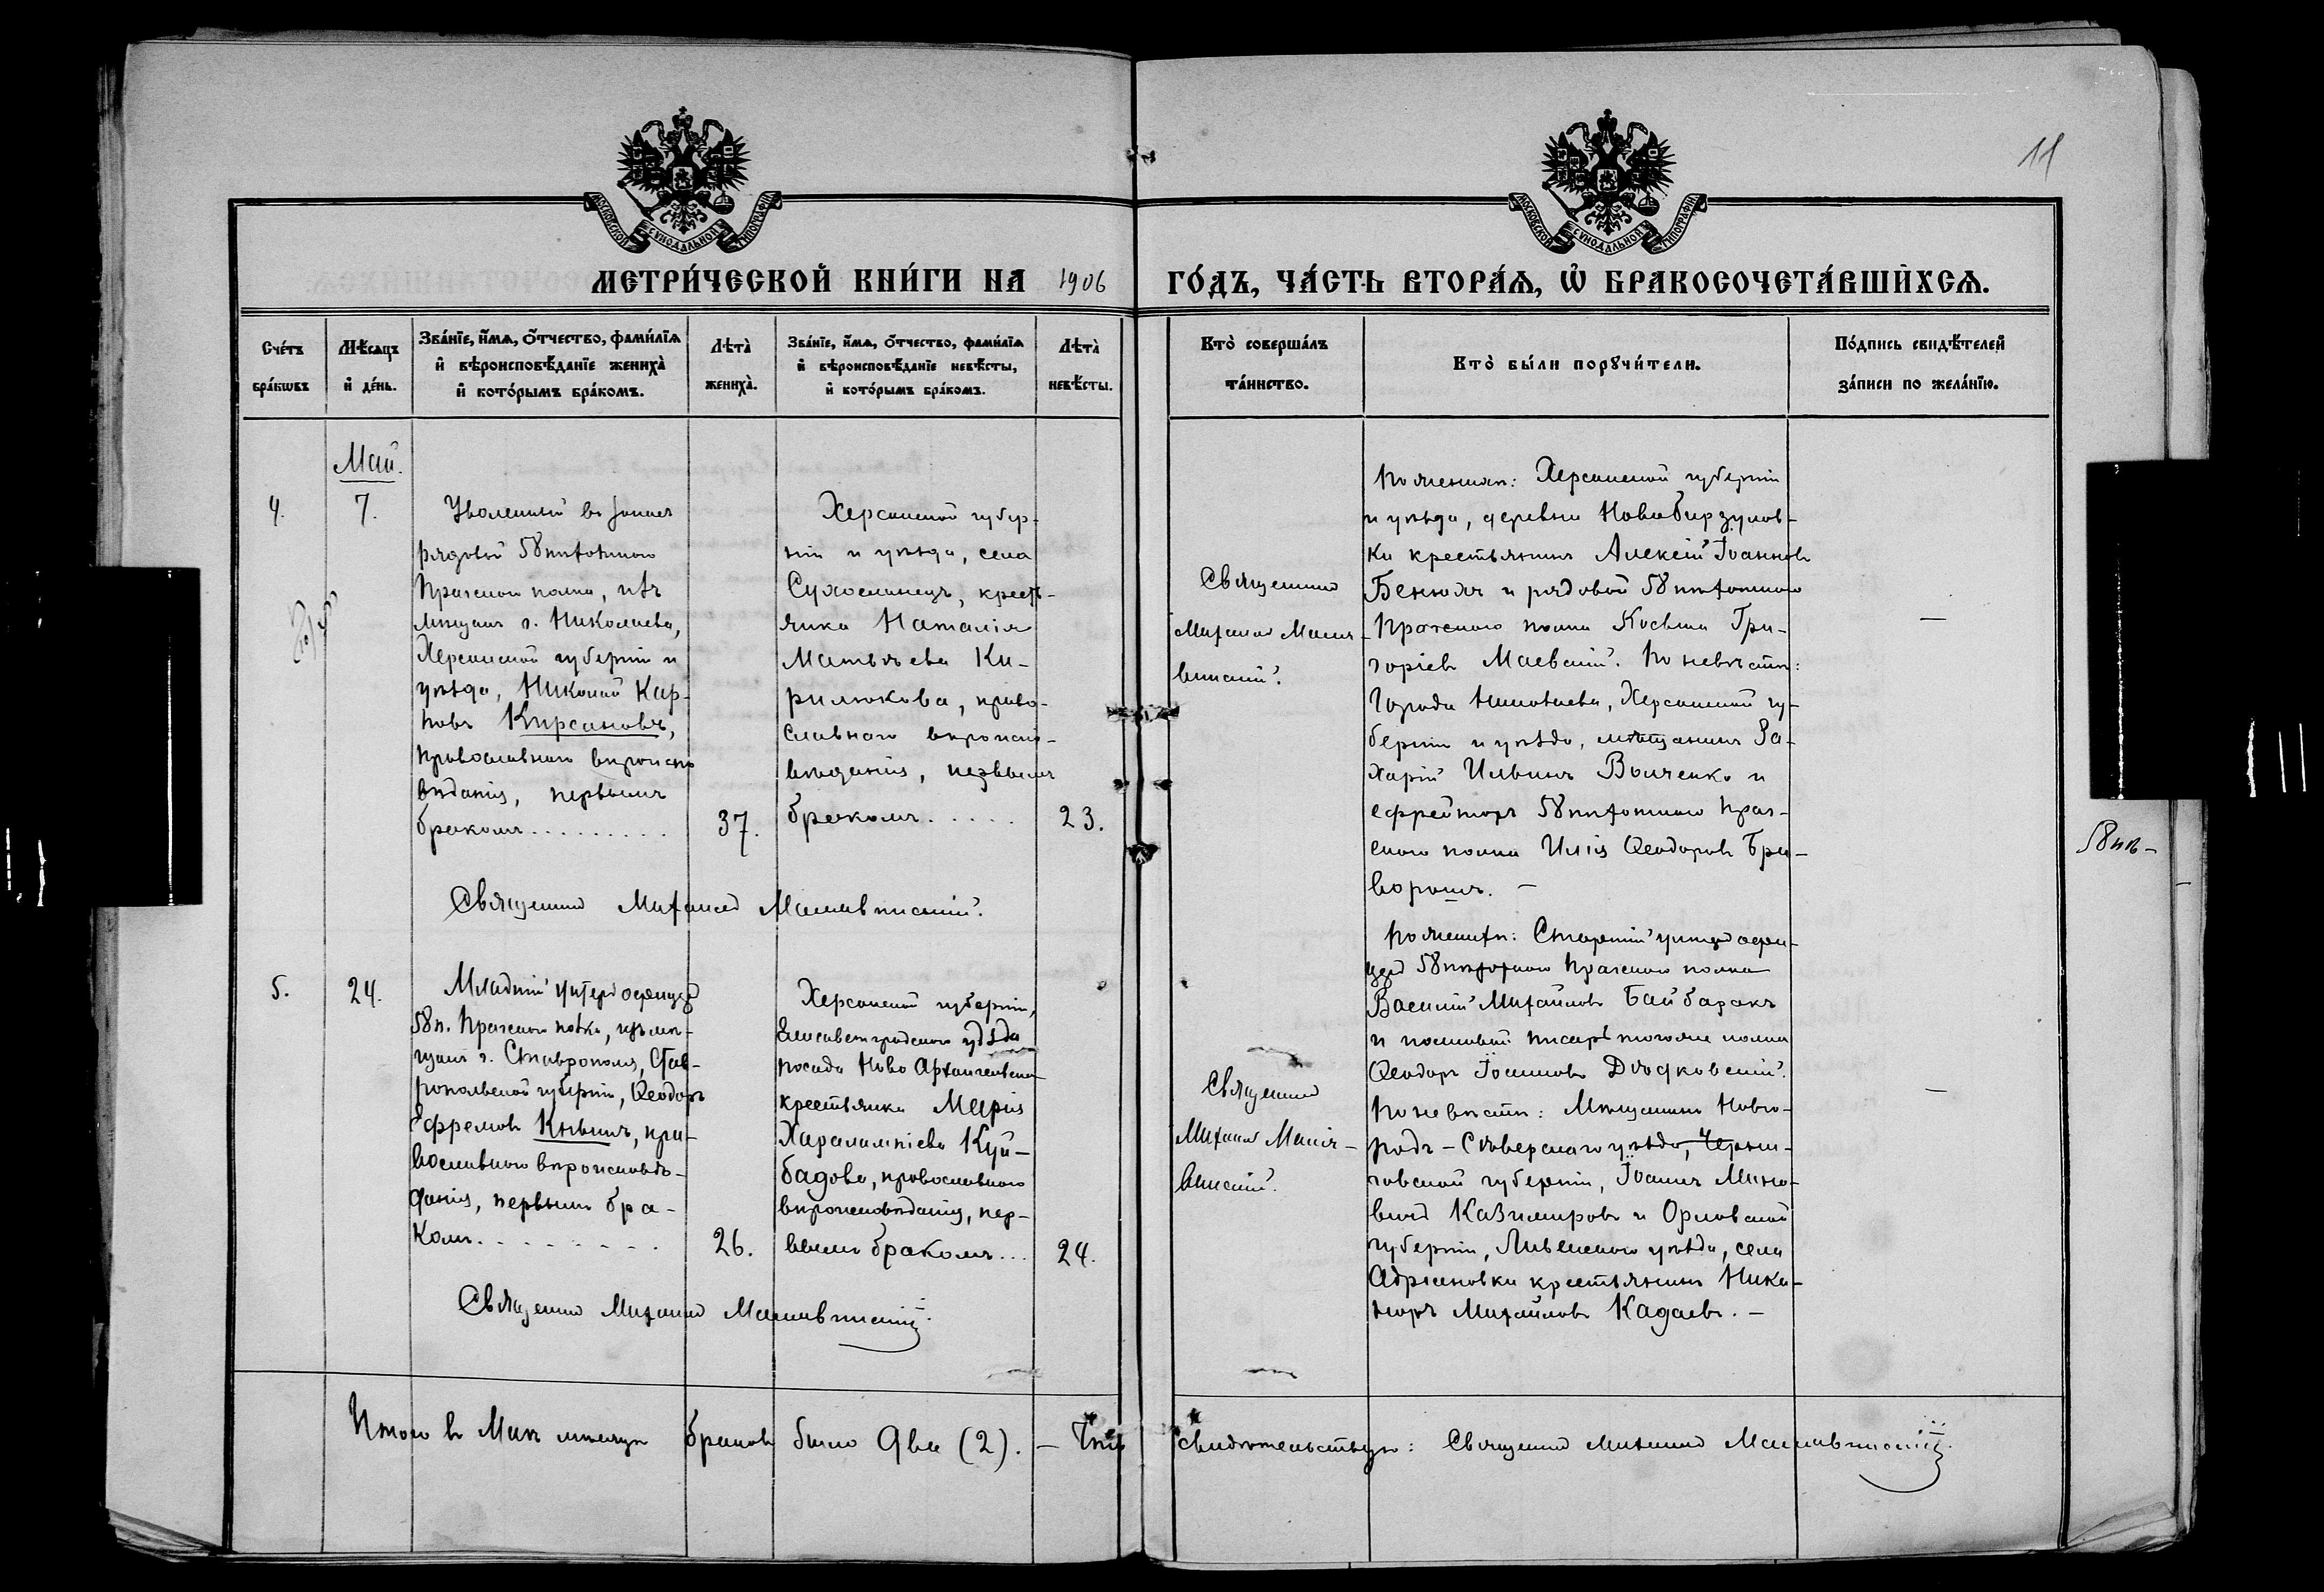 11
МОСКОВСКОЙ СѴНОДАЛЬНОЙ ТИПОГРАФІИ
МОСКОВСКОЙ СѴНОДАЛЬНОЙ ТИПОГРАФІИ
МЕТРИ́ЧЕСКОЙ КНИ́ГИ НА 1906 ГО́ДЪ, ЧА́СТЬ ВТОРА́Ѧ, Ѿ БРАКОСОЧЕТА́ВШИХСѦ.
Сче́тъ
бра́кѡвъ
Мѣ́сѧцъ
и҆ де́нь.
Зва́нїе, и҆́мѧ, ѻ҆́тчество, фами́лїѧ
и҆ вѣроисповѣ́данїе жениха̀
и҆ кото́рымъ бра́комъ.
Лѣта̀
жениха̀.
Зва́нїе, и҆́мѧ, ѻ҆́тчество, фами́лїѧ
и҆ вѣроисповѣ́данїе невѣ́сты,
и҆ кото́рымъ бра́комъ.
Лѣта̀
невѣ́сты.
Кто̀ соверша́лъ
та́инство.
Кто̀ бы́ли порꙋчи́тели.
По́дпись свидѣ́телей
за́писи по жела́нїю.
Май.
4.
7.
Уволенный въ запасъ
рядовой 58 пѣхотнаго
Пражскаго полка, изъ
мѣщанъ г. Николаева,
Херсонской губерніи и
уѣзда, Николай Кар-
повъ Кирсановъ,
православнаго вѣроиспо
вѣданія, первымъ
бракомъ.........
37.
Херсонской губер-
ніи и уѣзда, села
крестъ-
янка Наталія
Матвѣева Ки-
рилюкова, право-
славнаго вѣроиспо-
вѣданія, первымъ
бракомъ.....
23.
Священникъ
Михаилъ
По женихѣ: Херсонской губерніи
и уѣзда, деревни Новобирзулов-
ки крестьянинъ Алексій Іоанновъ
и рядовой 58 пѣхотнаго
Пражскаго полка Косьма Гри-
горіевъ Маевскій. По невѣстѣ:
Города Николаева, Херсонской гу-
берніи и уѣзда, мѣщанинъ За-
харій Ильинъ Волченко и
ефрейторъ 58 пѣхотнаго Праж-
скаго полка Илія Ѳеодоровъ
—
Священникъ Михаилъ
58 пѣ-
5.
24.
Младшій унтеръ офицеръ
58 п. Пражскаго полка, изъ мѣ-
щанъ г. Ставрополя, Став-
ропольской губерніи, Ѳеодоръ
Ефремовъ пра-
вославнаго вѣроисповѣ-
данія, первымъ бра-
комъ.........
26.
Херсонской губерніи,
Елисаветградскаго уѣзда
посада Ново Архангельска
крестьянка Марія
Харалампіева Куй-
бадова, православнаго
вѣроисповѣданія, пер-
вымъ бракомъ...
24.
Священникъ
Михаилъ
По женихѣ: Старшій унтеръ офи-
церъ 58 пѣхотнаго Пражскаго полка
Василій Михайловъ Байбаракъ
и полковой писарь того же полка
Ѳеодоръ Іоанновъ
По невѣстѣ: Мѣщанинъ Новго-
родъ-Сѣверскаго уѣзда, Черни-
говской губерніи, Іоаннъ
Казимировъ и Орловской
губерніи, Ливенскаго уѣзда, села
Адріановки крестьянинъ Ника-
норъ Михайловъ Кадаевъ. —
—
Священникъ Михаилъ
Итого въ Маѣ мѣсяцѣ браковъ было два (2). — свидѣтельствую: Священникъ Михаилъ